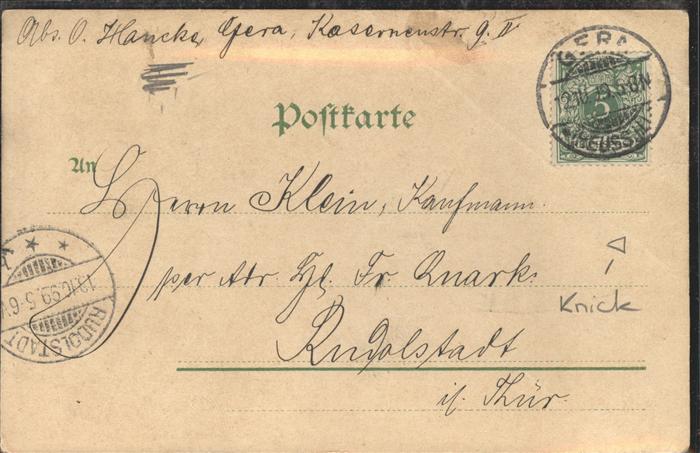 Abs. O. Hancke, Gera, Kasernenstr. 9. II
GERA
12.10.99.5-6N
(REUSS)
5
Postkarte
An
Herrn Klein, Kaufmann.
per Adr. Hl. Fr. Quark.
Rudolstadt
i/ Thür.
Knick
13.10.99.5-6V
RUDOLSTADT